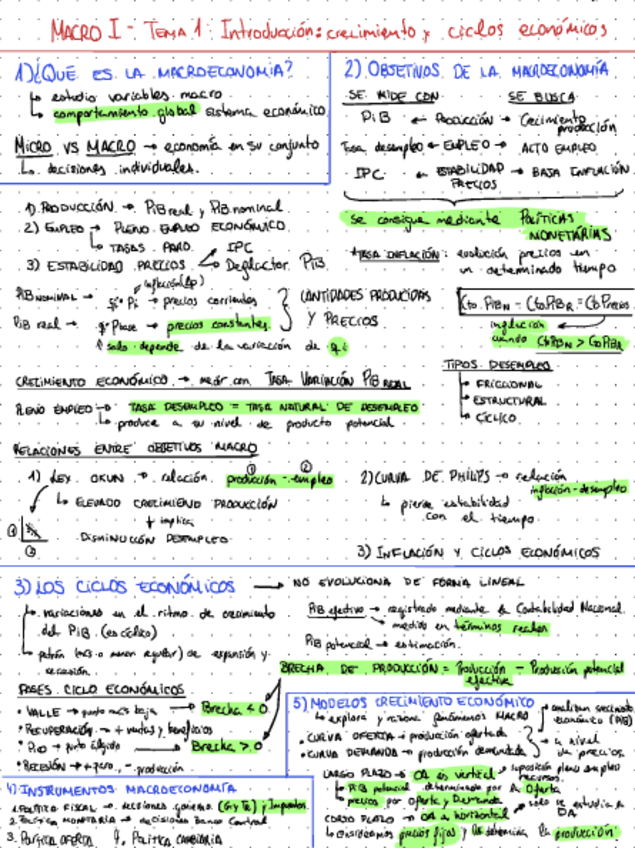 MACRO I - TEMA 1: Introducción: crecimiento y ciclos económicos
1) ¿QUÉ ES LA MACROECONOMIA?
↳ estudio variables macro
↳ comportamiento global sistema económico
MICRO VS MACRO → economía en su conjunto
↳ decisiones individuales.
2) OBJETIVOS DE LA MACROECONOMÍA
SE MIDE CON SE BUSCA
PiB ← PRODUCCIÓN → Crecimiento producción
Tasa desempleo ← EMPLEO → ALTO EMPLEO
IPC ← ESTABILIDAD PRECIOS → BAJA INFLACIÓN
Se consigue mediante POLÍTICAS MONETARIAS
* TASA INFLACIÓN: evolución precios en
un determinado tiempo
1) PRODUCCIÓN → PiB real y PiB nominal.
2) EMPLEO → PLENO EMPLEO ECONÓMICO
↳ TASAS PARO.
3) ESTABILIDAD PRECIOS < IPC
Deflactor PIB
PiB NOMINAL → qi · Pi → precios corrientes
PiB real → → precios constantes
↑ solo depende de la variación de qi
CANTIDADES PRODUCIDAS
Y PRECIOS
Cto. PiBN - CtoPiBR = CtoPrecios
inflación
cuando CtoPiBN > CtoPiBR
TIPOS DESEMPLEO
FRICCIONAL
ESTRUCTURAL
CÍCLICO
CRECIMIENTO ECONÓMICO → medir con TASA VARIACIÓN PiB REAL
PLENO EMPLEO → TASA DESEMPLEO = TASA NATURAL DE DESEMPLEO
↳ produce a su nivel de producto potencial
RELACIONES ENTRE OBJETIVOS MACRO
1) LEY OKUN → relación producción - empleo
↳ ELEVADO CRECIMIENTO PRODUCCIÓN
↓ implica
DISMINUCIÓN DESEMPLEO
2) CURVA DE PHILIPS → relación
inflación - desempleo
↳ pierde estabilidad
con el tiempo
3) INFLACIÓN Y CICLOS ECONÓMICOS
3) LOS CICLOS ECONÓMICOS → NO EVOLUCIONA DE FORMA LINEAL
↳ variaciones en el ritmo de crecimiento
del PiB. (es cíclico)
↳ patrón (más o menos regular) de expansión y
recesión.
PiB efectivo → registrado mediante la Contabilidad Nacional
medido en términos reales
PiB potencial → estimación.
BRECHA DE PRODUCCIÓN = Producción efectiva - Producción potencial
FASES CICLO ECONÓMICOS
• VALLE → punto más bajo → Brecha < 0
• RECUPERACIÓN → + ventas y beneficios
• PICO → punto álgido → Brecha > 0
• RECESIÓN → + paro, - producción
4) INSTRUMENTOS MACROECONOMÍA
1. POLÍTICA FISCAL → decisiones gobierno (G y Tr) y Impuestos
2. POLÍTICA MONETARIA → decisiones Banco Central
3. POLÍTICA OFERTA 4. POLÍTICA CAMBIARIA
5) MODELOS CRECIMIENTO ECONÓMICO
↳ explora y razona fenómenos MACRO
• CURVA OFERTA → producción ofertada
• CURVA DEMANDA → producción demandada
→ a nivel
precios.
LARGO PLAZO → OA es vertical
↳ PiB potencial determinado por la Oferta
↳ precios por Oferta y Demanda
CORTO PLAZO → OA horizontal
solo se estudia
DA
↳ consideramos precios fijos y DA determina la producción